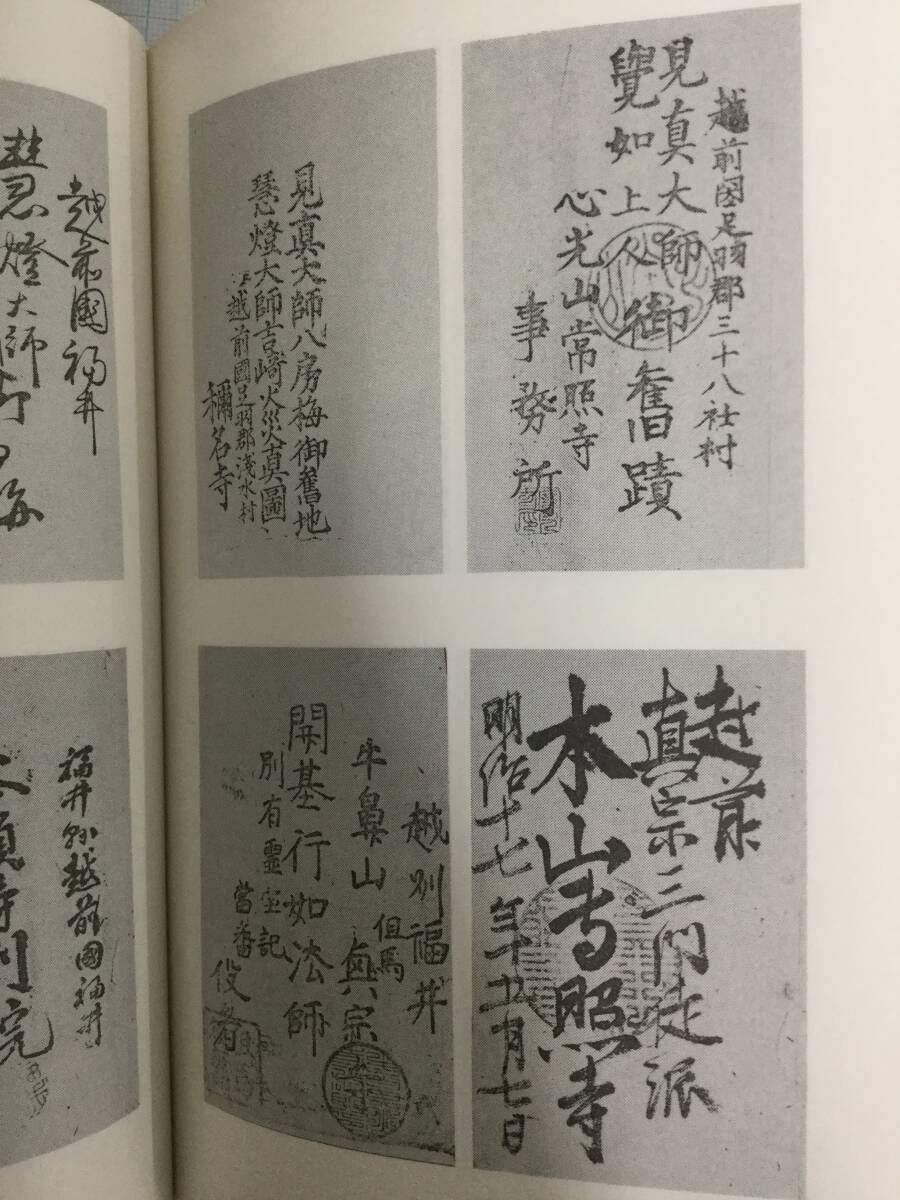 越前國足羽郡三十八社村
見真大師
覺如上人御舊蹟
心光山常照寺
事務所
見真大師八房梅御舊地
慧燈大師吉崎火災真圖
越前國足羽郡淺水村
稱名寺
越前國福井
慧燈大師
越前
真宗三門徒派
本山専照寺
明治十七年五月七日
越州福井
牛鼻山
但馬
興宗
開基行如法師
別有靈宝記
當番
役者
福井県越前國福井
本願寺別院